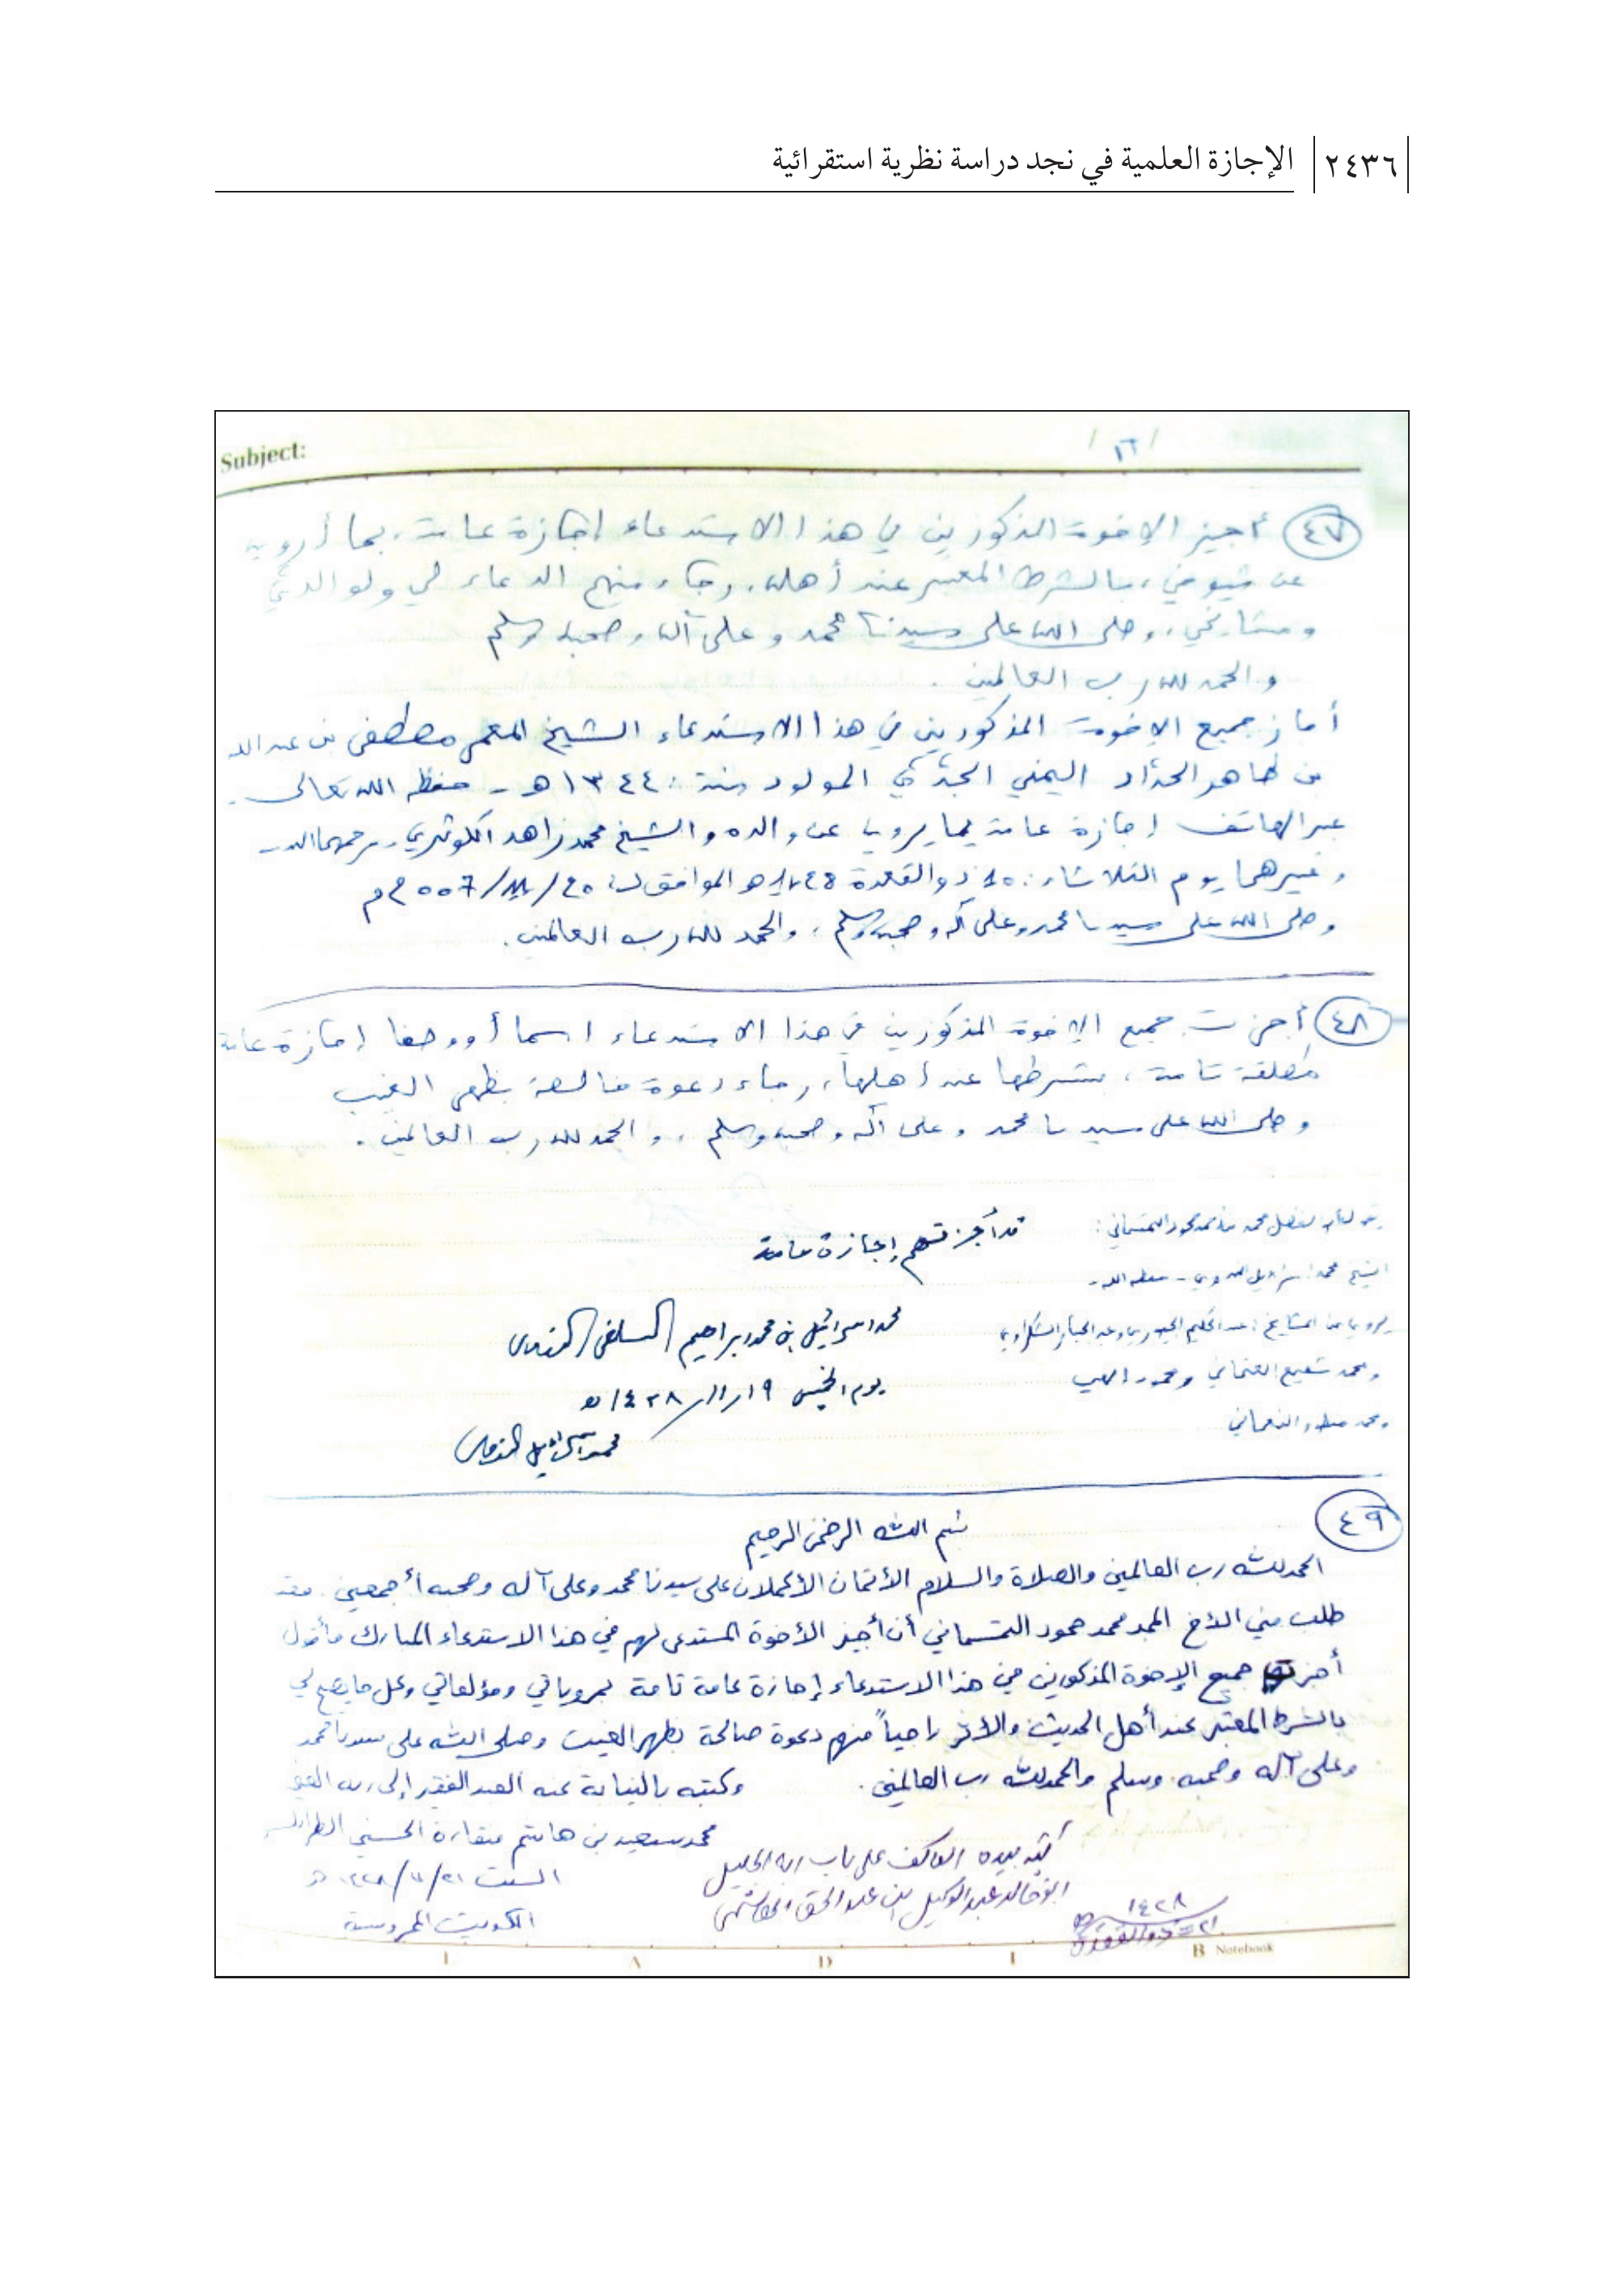 ٢٤٣٦ الإجازة العلمية في نجد دراسة نظرية استقرائية
Subject:
/ ١٦ /
٤٧ أجيز الإخوة المذكورين في هذا الاستدعاء إجازة عامة، بما أرويه
عن شيوخي، بالشرط المعتبر عند أهله، رجاء منهم الدعاء لي ولوالدي
ومشايخي، وصلى الله على سيدنا محمد وعلى آله وصحبه وسلم
والحمد لله رب العالمين.
أجاز جميع الإخوة المذكورين في هذا الاستدعاء الشيخ المعمر مصطفى بن عبد الله
بن طاهر الحداد اليمني الجدي المولود سنة: ١٣٤٤ هـ - حفظه الله تعالى -
عبر الهاتف إجازة عامة بما يرويه عن والده والشيخ محمد زاهد الكوثري - رحمهما الله -
وغيرهما يوم الثلاثاء: ذو القعدة هـ الموافق لـ: م
وصلى الله على سيدنا محمد وعلى آله وصحبه وسلم، والحمد لله رب العالمين.
٤٨ أجزت جميع الإخوة المذكورين في هذا الاستدعاء اسما أو وصفا إجازة عامة
مطلقة تامة، بشرطها عند أهلها، رجاء دعوة صالحة بظهر الغيب
وصلى الله على سيدنا محمد وعلى آله وصحبه وسلم، والحمد لله رب العالمين.
قد أجزتهم إجازة عامة
محمد إسرائيل بن محمد إبراهيم السلفي الندوي
يوم الخميس ١٩/١١/١٤٢٨هـ
محمد إسرائيل الندوي
الشيخ محمد إسرائيل الندوي - حفظه الله -
يروي عن المشايخ: عبد الحكيم الجيوري وعبد الجبار الشكراوي
ومحمد شفيع العثماني
ومحمد منظور النعماني
٤٩
بسم الله الرحمن الرحيم
الحمد لله رب العالمين والصلاة والسلام الأتمان الأكملان على سيدنا محمد وعلى آله وصحبه أجمعين. فقد
طلب مني الأخ محمد حمود التمسماني أن أجيز الأخوة المستدعى لهم في هذا الاستدعاء المبارك فأقول
أجزت جميع الإخوة المذكورين في هذا الاستدعاء إجازة عامة تامة بمروياتي ومؤلفاتي وكل ما يصح لي
بالشرط المعتبر عند أهل الحديث والأثر راجياً منهم دعوة صالحة بظهر الغيب وصلى الله على سيدنا محمد
وعلى آله وصحبه وسلم والحمد لله رب العالمين.
وكتبه بالنيابة عنه العبد الفقير إلى ربه
محمد سعيد بن هاشم منقارة الحسني
السبت
الكويت المحروسة
كتبه بيده العاكف على باب ربه الجليل
أبو خالد عبد الوكيل ابن عبد الحق الهاشمي
١٤٢٨
٢١ = ذو القعدة
B Notebook